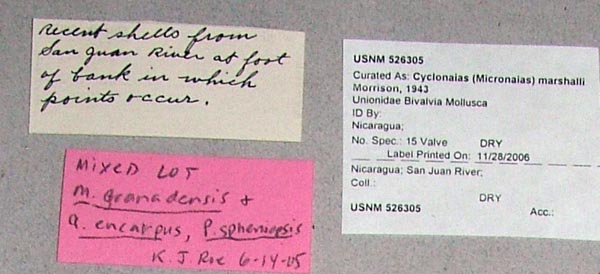 Recent shells from
San Juan River at foot
of bank in which
points occur.
MIXED LOT
M. granadensis &
A. encarpus, P. spheniopsis
K. J. Roe 6-14-05
USNM 526305
Curated As: Cyclonaias (Micronaias) marshalli
Morrison, 1943
Unionidae Bivalvia Mollusca
ID By:
Nicaragua;
No. Spec.: 15 Valve DRY
Label Printed On: 11/28/2006
Nicaragua; San Juan River;
Coll.:
DRY
USNM 526305 Acc.: